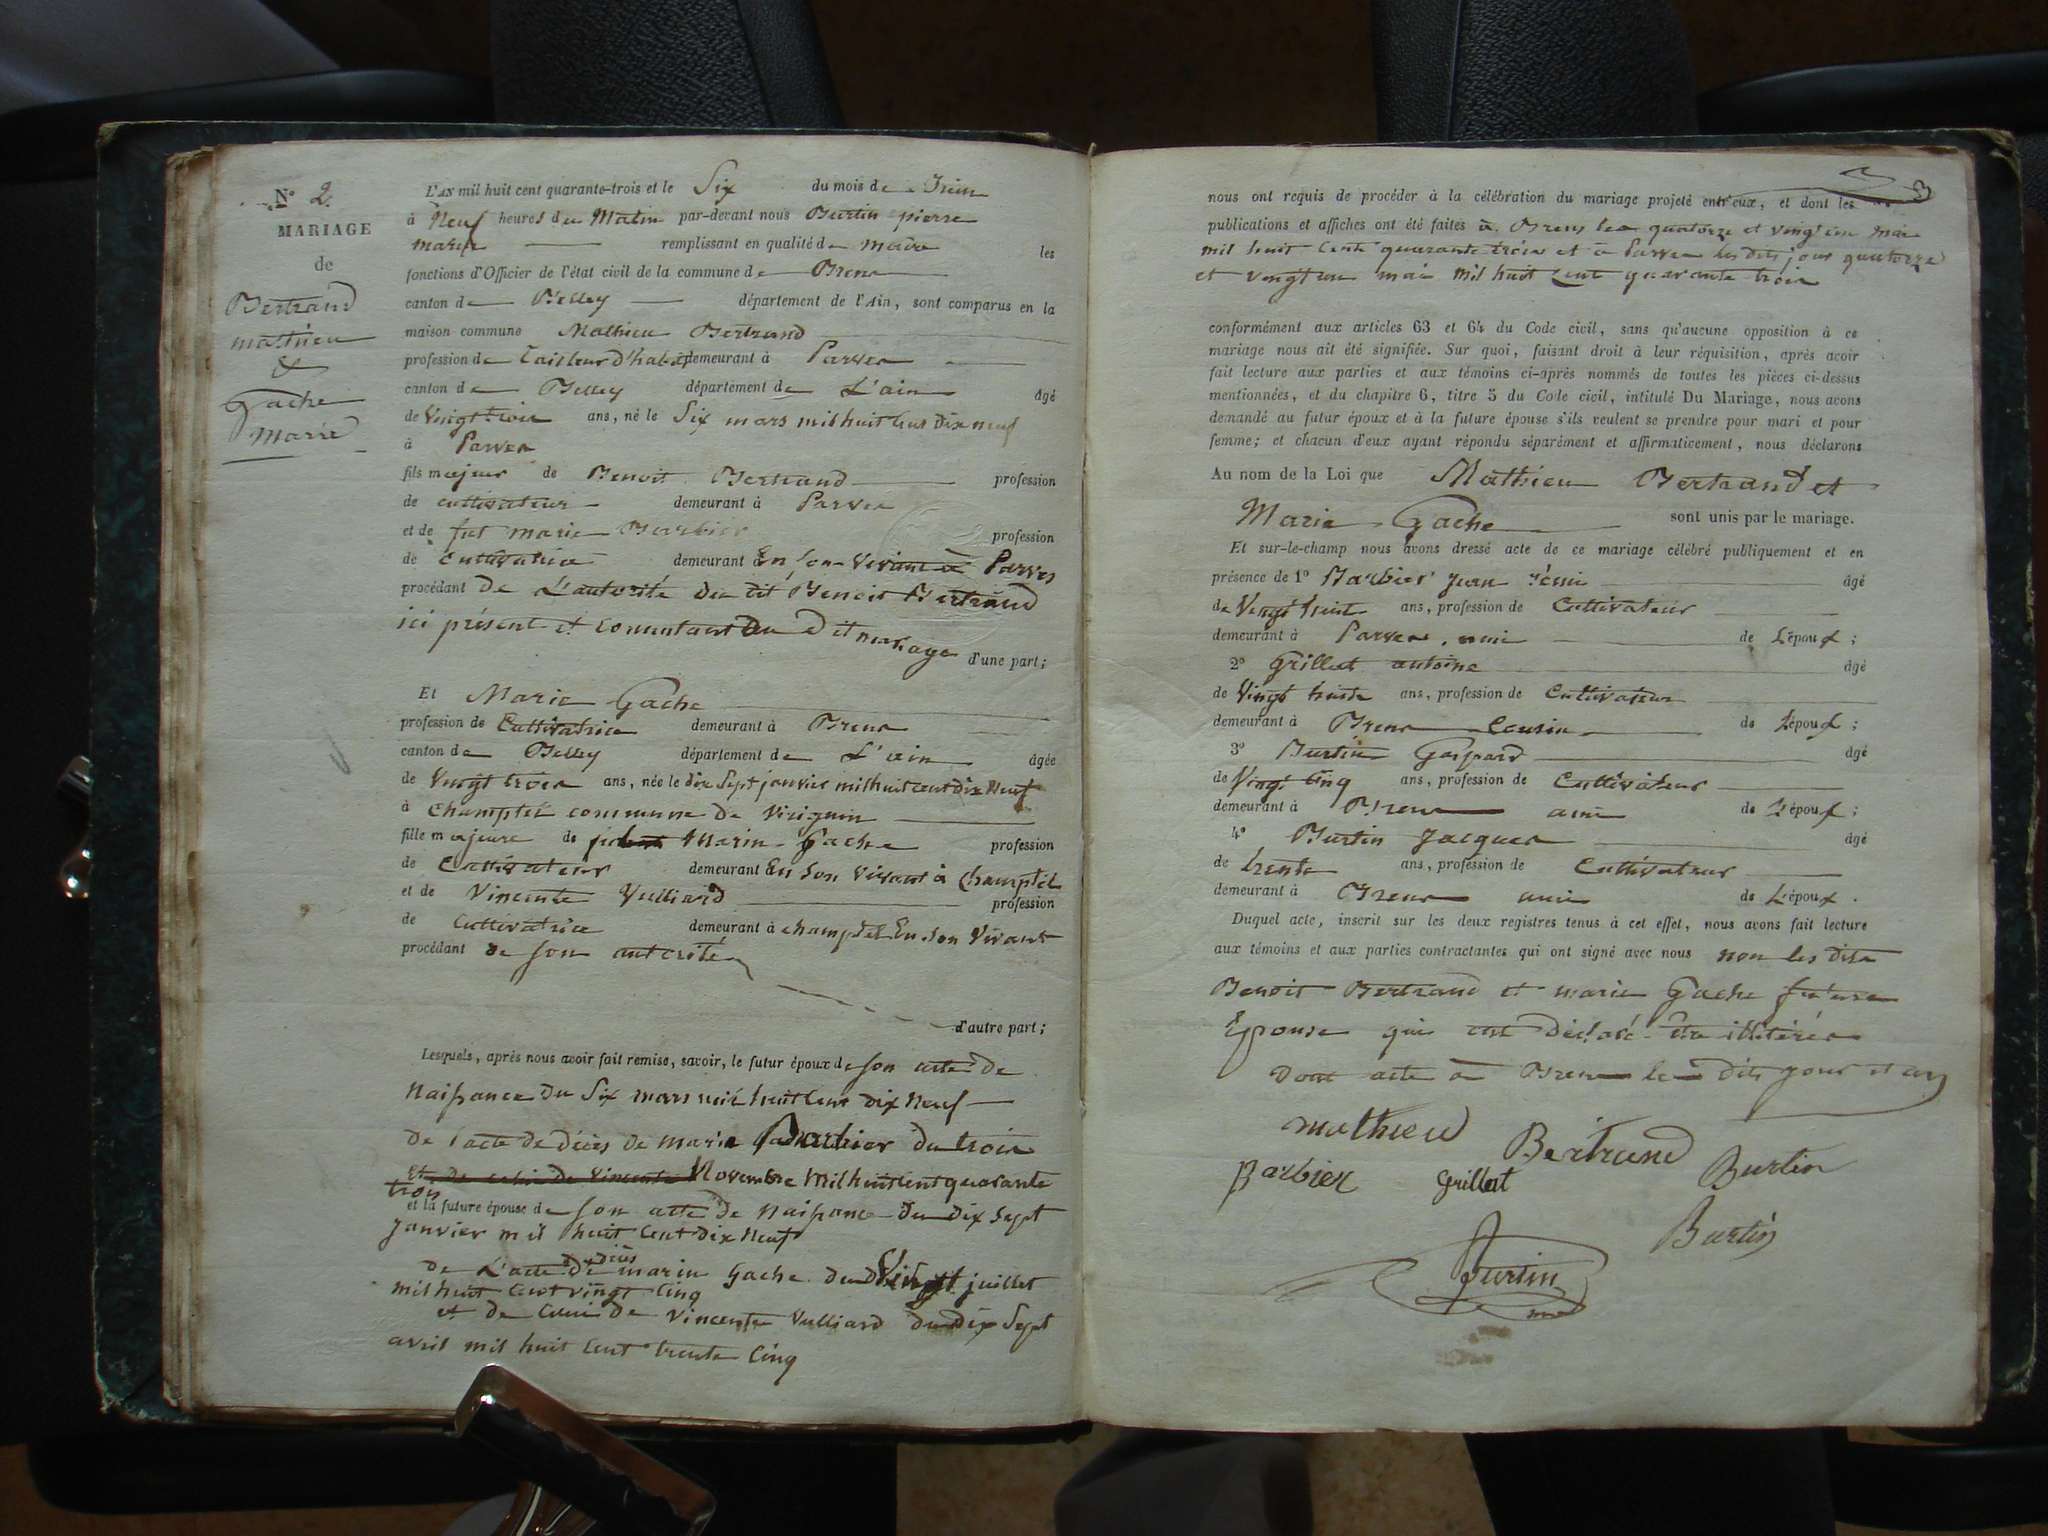 N° 2.
MARIAGE
de
Bertrand
mathieu
&
Gache
Marie
L'AN mil huit cent quarante-trois et le Six du mois de Juin
à Neuf heures du Matin par-devant nous Burtin pierre
marie remplissant en qualité de maire les
fonctions d'Officier de l'état civil de la commune de Brens
canton de Belley département de l'Ain, sont comparus en la
maison commune Mathieu Bertrand
profession de Tailleur d'habit demeurant à Parves
canton de Belley département de L'ain âgé
de Vingt trois ans, né le Six mars mil huit cent dix neuf
à Parves
fils majeur de Benoit Bertrand profession
de cultivateur demeurant à Parves
et de fut marie Barbier profession
de Cultivatrice demeurant En son vivant à Parves
procédant de L'autorité du dit Benoit Bertrand
ici présent et consentant au dit mariage d'une part;
Et Marie Gache
profession de Cultivatrice demeurant à Brens
canton de Belley département de L'ain âgée
de Vingt trois ans, née le dix Sept janvier mil huit cent dix Neuf
à Champtel commune de Virignin
fille majeure de Marin Gache profession
de Cultivateur demeurant En son vivant à Champtel
et de Vincente Vulliard profession
de Cultivatrice demeurant à champtel En son Vivant
procédant de son autorité
d'autre part;
Lesquels, après nous avoir fait remise, savoir, le futur époux de son acte de
Naissance du Six mars mil huit cent dix Neuf
de l'acte de décès de marie Barbier du trois
Et de celui de Vincente Novembre Mil huit cent quarante
trois
et la future épouse de son acte de Naissance du dix Sept
Janvier mil huit Cent dix Neuf
de L'acte de décès marin Gache du Vingt juillet
mil huit Cent vingt Cinq
et de Celui de Vincente Vulliard du dix Sept
avril mil huit Cent trente Cinq
3
nous ont requis de procéder à la célébration du mariage projeté entr'eux, et dont les
publications et affiches ont été faites à Brens les quatorze et vingt un mai
mil huit Cent quarante trois et à Parves les dits jour quatorze
et vingt un mai mil huit Cent quarante trois
conformément aux articles 63 et 64 du Code civil, sans qu'aucune opposition à ce
mariage nous ait été signifiée. Sur quoi, faisant droit à leur réquisition, après avoir
fait lecture aux parties et aux témoins ci-après nommés de toutes les pièces ci-dessus
mentionnées, et du chapitre 6, titre 5 du Code civil, intitulé Du Mariage, nous avons
demandé au futur époux et à la future épouse s'ils veulent se prendre pour mari et pour
femme; et chacun d'eux ayant répondu séparément et affirmativement, nous déclarons
Au nom de la Loi que Mathieu Bertrand et
Marie Gache sont unis par le mariage.
Et sur-le-champ nous avons dressé acte de ce mariage célébré publiquement et en
présence de 1° Barbier Jean rémi âgé
de Vingt huit ans, profession de Cultivateur
demeurant à Parves ami de L'époux;
2° Grillet antoine âgé
de Vingt huit ans, profession de Cultivateur
demeurant à Brens Cousin de L'époux;
3° Burtin Gaspard âgé
de Vingt Cinq ans, profession de Cultivateur
demeurant à Brens ami de L'époux;
4° Burtin Jacques âgé
de trente ans, profession de Cultivateur
demeurant à Brens ami de L'époux.
Duquel acte, inscrit sur les deux registres tenus à cet effet, nous avons fait lecture
aux témoins et aux parties contractantes qui ont signé avec nous non les dits
Benoit Bertrand et marie Gache future
Epouse qui ont déclaré être illitérés
Dont acte à Brens les dits jour et an
mathieu Bertrand
Barbier Grillet Burtin
Burtin
Burtin